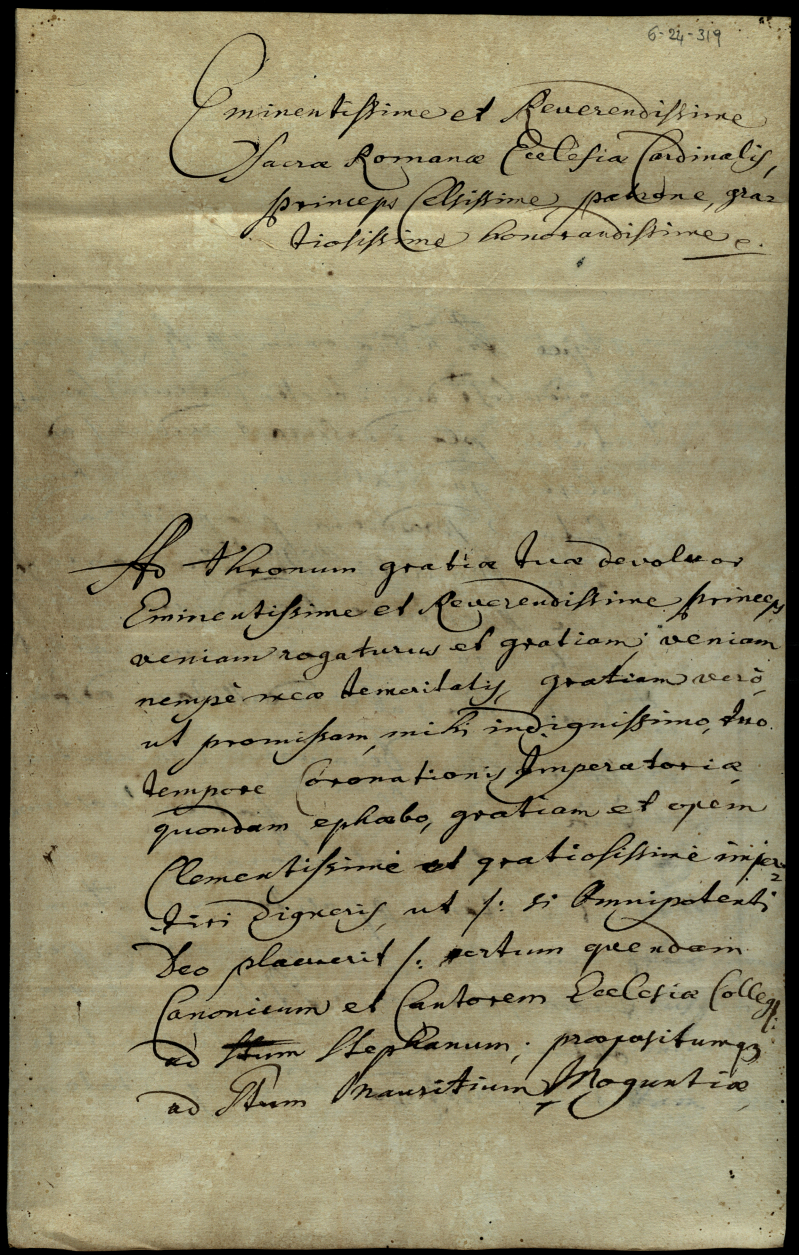 6-24-319
Eminentissime et Reverendissime
Sacræ Romanæ Ecclesiæ Cardinalis,
princeps Celsissime, patrone, gra=
tiosissime honorandissime
Ad thronum gratiæ tuæ devoluor
Eminentissime et Reverendissime princeps
veniam rogaturus et gratiam, veniam
nempè meæ temeritatis, gratiam verò,
ut promissam, mihi indignissimo, tuo
tempore Coronationis Imperatoriæ
quondam ephœbo, gratiam et opem
Clementissimè et gratiosissimè imper=
tiri digneris, ut /: si Omnipotenti
Deo placuerit /: certum quendam
Canonicum et Cantorem Ecclesiæ Colleg:
ad Stum Stephanum; præpositumqz
ad Stum Mauritium Moguntiæ